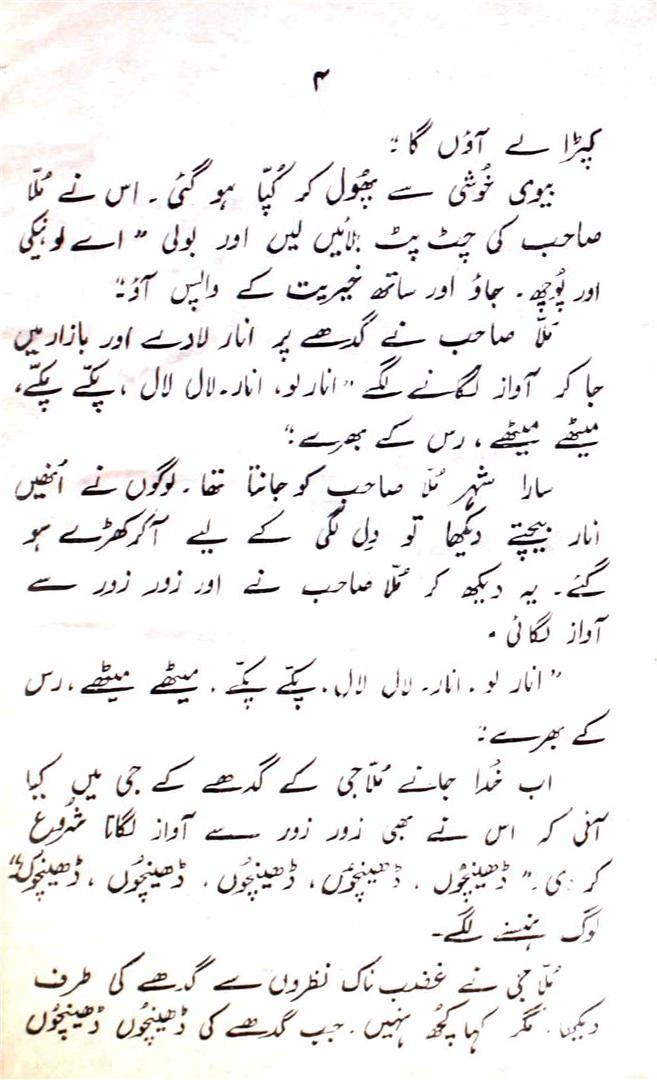 ۴
کپڑا لے آؤں گا۔"
بیوی خُوشی سے پھُول کر کُپّا ہو گئی۔ اس نے مُلّا
صاحب کی چٹ پٹ بلائیں لیں اور بولی "اے لو نیکی
اور پُوچھ۔ جاؤ اور ساتھ خیریت کے واپس آؤ۔"
مُلّا صاحب نے گدھے پر انار لادے اور بازار میں
جا کر آواز لگانے لگے "انار لو، انار۔ لال لال، پکّے پکّے،
میٹھے میٹھے، رس کے بھرے۔"
سارا شہر مُلّا صاحب کو جانتا تھا۔ لوگوں نے اُنھیں
انار بیچتے دیکھا تو دِل لگی کے لیے آ کر کھڑے ہو
گئے۔ یہ دیکھ کر مُلّا صاحب نے اور زور زور سے
آواز لگائی۔
"انار لو۔ انار۔ لال لال، پکّے پکّے، میٹھے میٹھے، رس
کے بھرے۔"
اب خُدا جانے مُلّا جی کے گدھے کے جی میں کیا
آئی کہ اس نے بھی زور زور سے آواز لگانا شُروع
کر دی۔ "ڈھینچُوں، ڈھینچُوں، ڈھینچُوں، ڈھینچُوں، ڈھینچُوں"
لوگ ہنسنے لگے۔
مُلّا جی نے غضب ناک نظروں سے گدھے کی طرف
دیکھا۔ مگر کہا کچُھ نہیں۔ جب گدھے کی ڈھینچُوں ڈھینچُوں